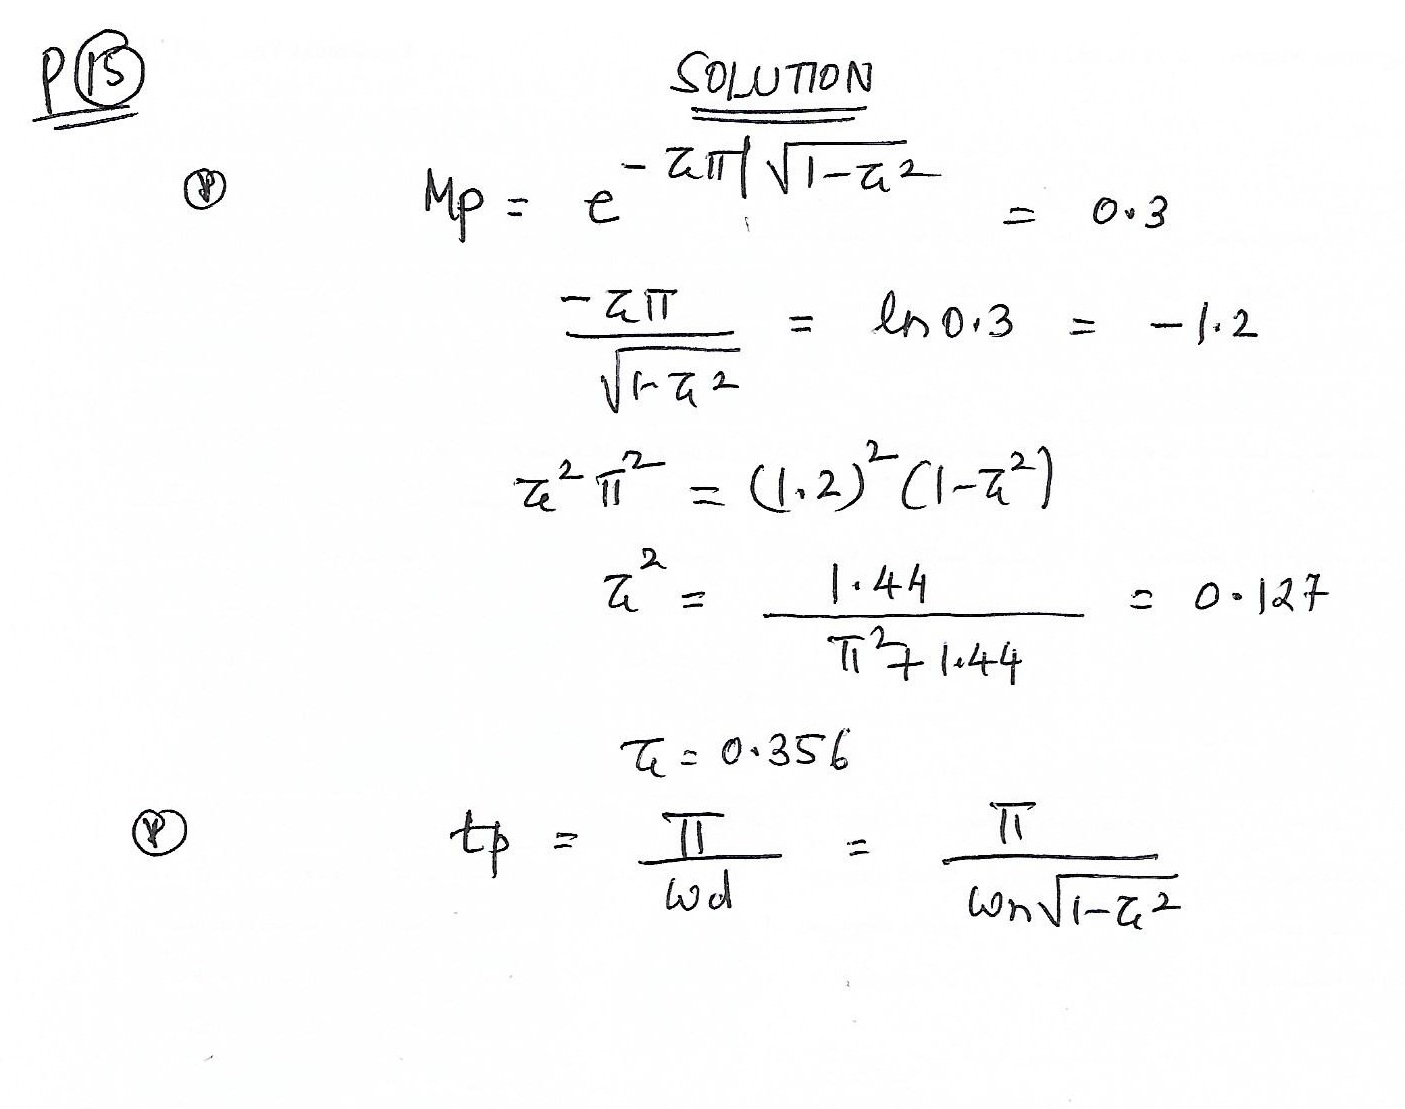 P(15)
SOLUTION
Mp = e^{-ζπ/√(1-ζ²)} = 0.3
-ζπ/√(1-ζ²) = ln 0.3 = -1.2
ζ²π² = (1.2)²(1-ζ²)
ζ² = 1.44/(π²+1.44) = 0.127
ζ = 0.356
tp = π/ωd = π/(ωn√(1-ζ²))